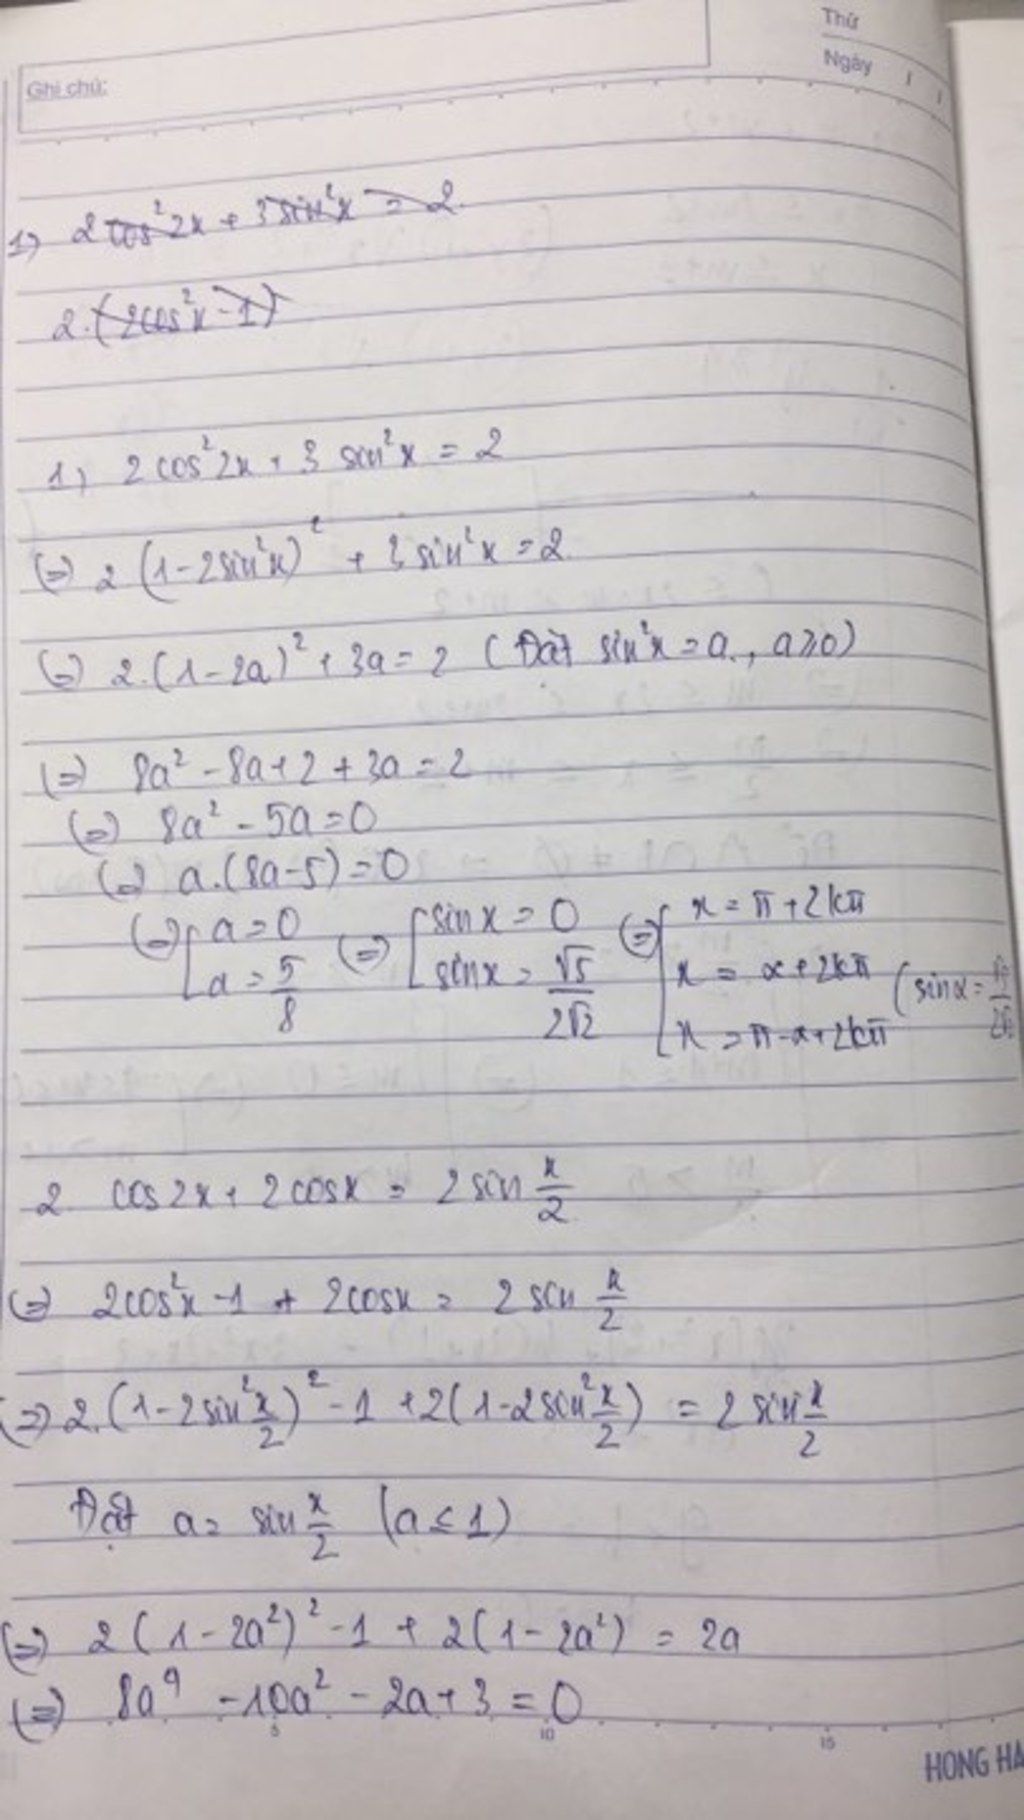 Thứ
Ngày / /
Ghi chú:
1) 2cos²2x + 3sin²x = 2
2.(2cos²x - 1)
1) 2cos²2x + 3 sin²x = 2
(=) 2 (1 - 2sin²x)² + 3 sin²x = 2
(=) 2.(1 - 2a)² + 3a = 2 ( Đặt sin²x = a, a ≥ 0)
(=) 8a² - 8a + 2 + 3a = 2
(=) 8a² - 5a = 0
(=) a.(8a - 5) = 0
(=) [ a = 0 (=) [ sinx = 0 (=) [ x = π + 2kπ
a = 5/8 sinx = √5/2√2 x = α + 2kπ (sinα = √5/2√2
x = π - α + 2kπ
2. cos2x + 2cosx = 2 sin x/2
(=) 2cos²x - 1 + 2cosx = 2 sin x/2
(=) 2.(1 - 2sin²x/2)² - 1 + 2(1 - 2sin²x/2) = 2 sin x/2
Đặt a = sin x/2 (a ≤ 1)
(=) 2 (1 - 2a²)² - 1 + 2(1 - 2a²) = 2a
(=) 8a⁴ - 10a² - 2a + 3 = 0
5 10 15
HONG HA